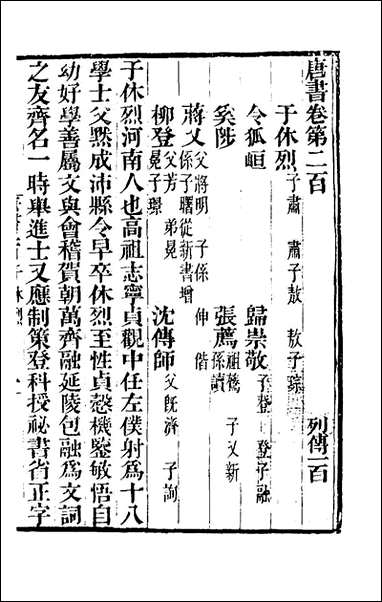 唐書卷第二百　列傳一百
于休烈　子肅　肅子敖　敖子琮　歸崇敬　子登　登子融
令狐峘　張薦　祖鷟　子又新　孫讀
奚陟
蔣乂　父將明　子係　伸　偕　係子曙從新書增
柳登　父芳　弟冕　冕子璟　沈傳師　父既濟　子詢
于休烈河南人也高祖志寧貞觀中任左僕射爲十八
學士父默成沛縣令早卒休烈至性貞慤機鑒敏悟自
幼好學善屬文與會稽賀朝萬齊融延陵包融爲文詞
之友齊名一時舉進士又應制策登科授祕書省正字